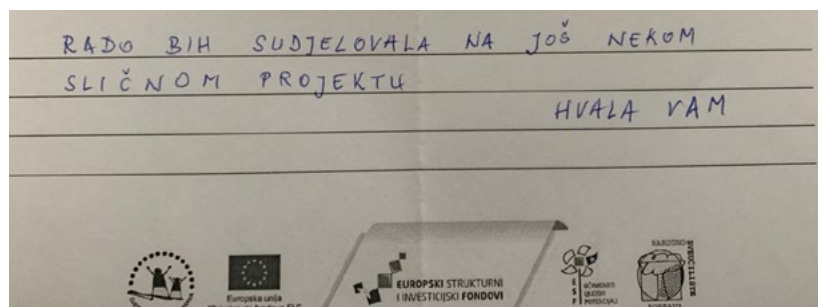 RADO BIH SUDJELOVALA NA JOŠ NEKOM
SLIČNOM PROJEKTU
HVALA VAM
Europska unija
EUROPSKI STRUKTURNI
I INVESTICIJSKI FONDOVI
E UČINKOVITI
S LJUDSKI
F POTENCIJALI
NARODNO
SVEUČILIŠTE